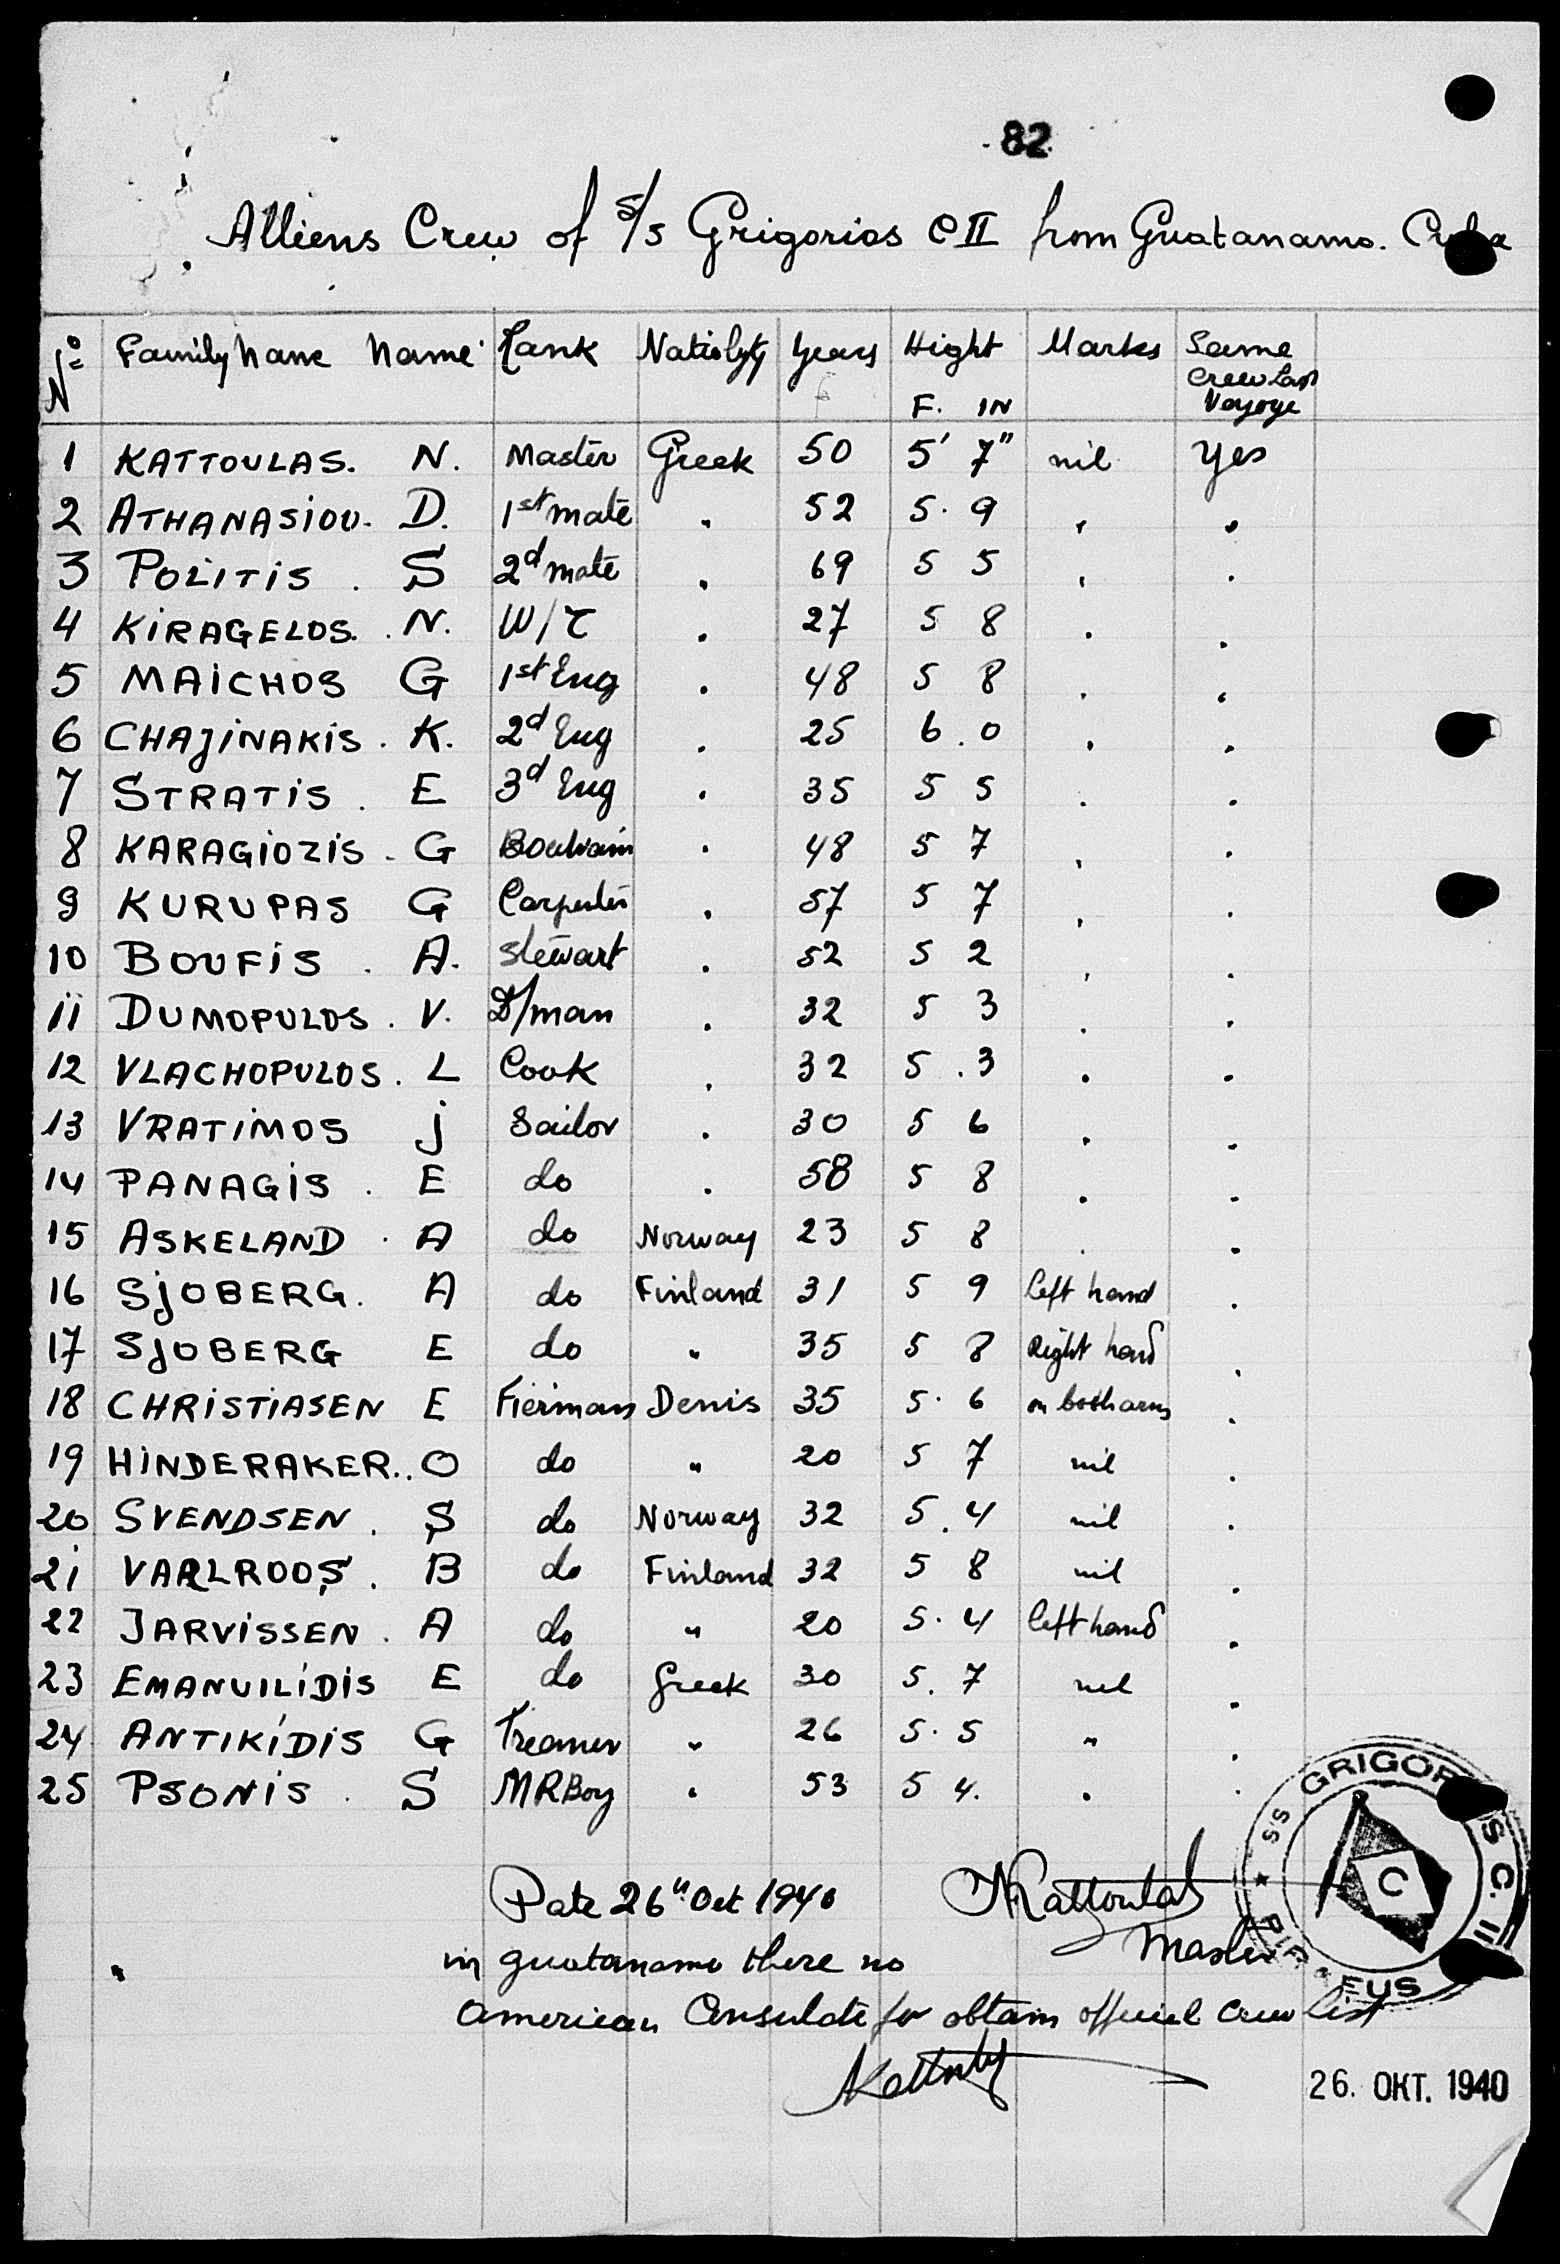 82
Alliens Crew of S/S Grigorios C II from Guatanamo. Cuba
No Family Name Name Rank Natiolyty Years Hight Marks Same Crew Last Voyage
F. IN
1 KATTOULAS. N. Master Greek 50 5' 7" nil Yes
2 ATHANASIOU. D. 1st mate " 52 5. 9 " "
3 POLITIS. S 2d mate " 69 5 5 " "
4 KIRAGELOS. N. W/T " 27 5 8 " "
5 MAICHOS G 1st Eng " 48 5 8 " "
6 CHAJINAKIS. K. 2d Eng " 25 6. 0 " "
7 STRATIS. E 3d Eng " 35 5 5 " "
8 KARAGIOZIS. G " 48 5 7 " "
9 KURUPAS G Carpenter " 57 5 7 " "
10 BOUFIS. A. Stewart " 52 5 2 " "
11 DUMOPULOS. V. D/man " 32 5 3 " "
12 VLACHOPULOS. L Cook " 32 5. 3 " "
13 VRATIMOS J Sailor " 30 5 6 " "
14 PANAGIS. E do " 58 5 8 " "
15 ASKELAND. A do Norway 23 5 8 " "
16 SJOBERG. A do Finland 31 5 9 left hand "
17 SJOBERG E do " 35 5 8 Right hand "
18 CHRISTIASEN E Fierman Denis 35 5. 6 on both arms "
19 HINDERAKER.. O do " 20 5 7 nil "
20 SVENDSEN. S do Norway 32 5. 4 nil "
21 VARLROOS. B do Finland 32 5 8 nil "
22 JARVISSEN. A do " 20 5. 4 left hand "
23 EMANUILIDIS E do Greek 30 5. 7 nil "
24 ANTIKIDIS G " 26 5. 5 " "
25 PSONIS. S MRBoy " 53 5 4. " "
Date 26th Oct 1940 NKattoulas
Master
in guatanamo there no
american Consulate for obtain official crew list
NKattoulas
SS GRIGORIOS C. II
C
26. OKT. 1940